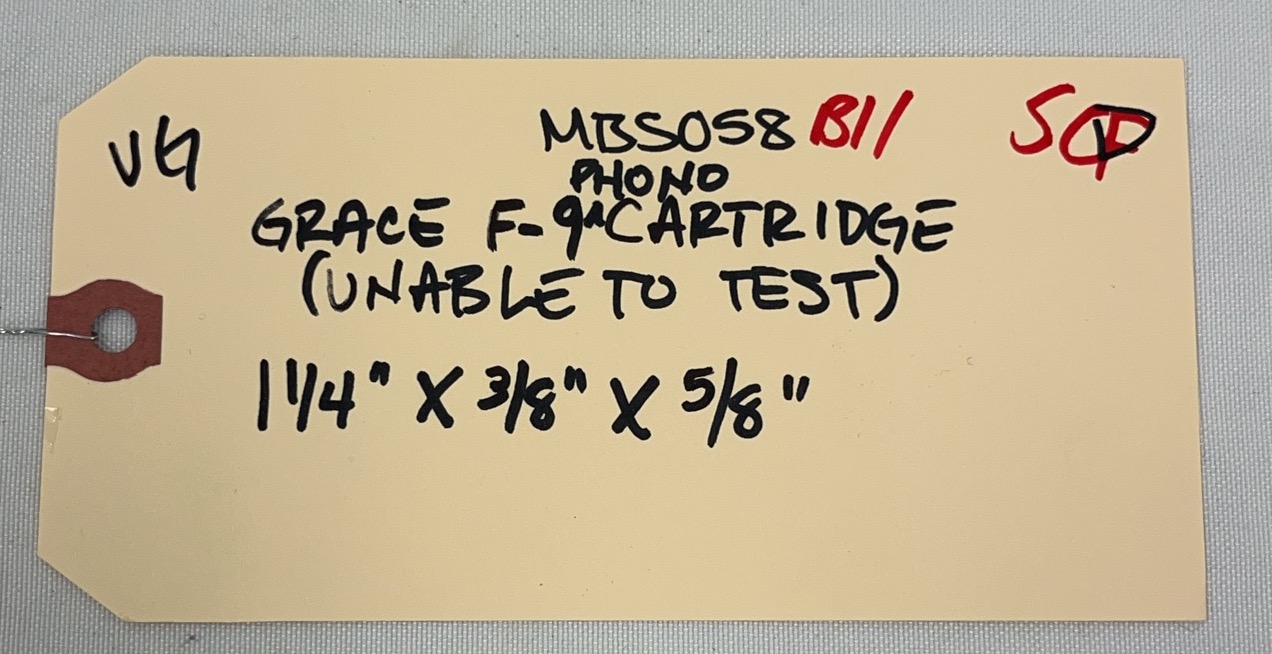 VG
MBS058 B11
PHONO
GRACE F-9 CARTRIDGE
(UNABLE TO TEST)
1 1/4" X 3/8" X 5/8"